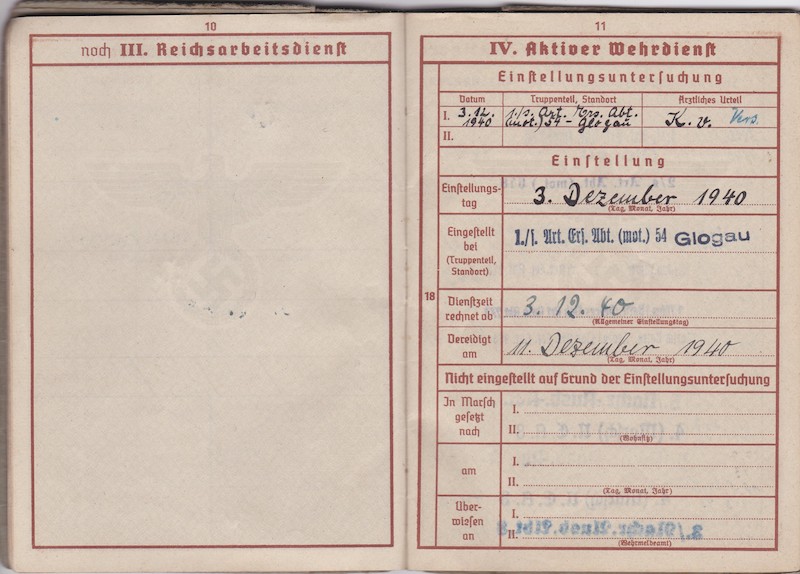 10
noch III. Reichsarbeitsdienst
11
IV. Aktiver Wehrdienst
Einstellungsuntersuchung
Datum Truppenteil, Standort Ärztliches Urteil
I. 3.12. 1940 1./s. Art. Ers. Abt. (mot.) 54 - Glogau K. v.
II.
Einstellung
Einstellungs-
tag
3. Dezember 1940
(Tag, Monat, Jahr)
Eingestellt
bei
(Truppenteil,
Standort)
1./s. Art. Ers. Abt. (mot) 54 Glogau
18
Dienstzeit
rechnet ab
3. 12. 40
(Allgemeiner Einstellungstag)
Vereidigt
am
11. Dezember 1940
(Tag, Monat, Jahr)
Nicht eingestellt auf Grund der Einstellungsuntersuchung
In Marsch
gesetzt
nach
I.
II.
(Wohnsitz)
am
I.
II.
(Tag, Monat, Jahr)
Über-
wiesen
an
I.
II.
(Wehrmeldeamt)